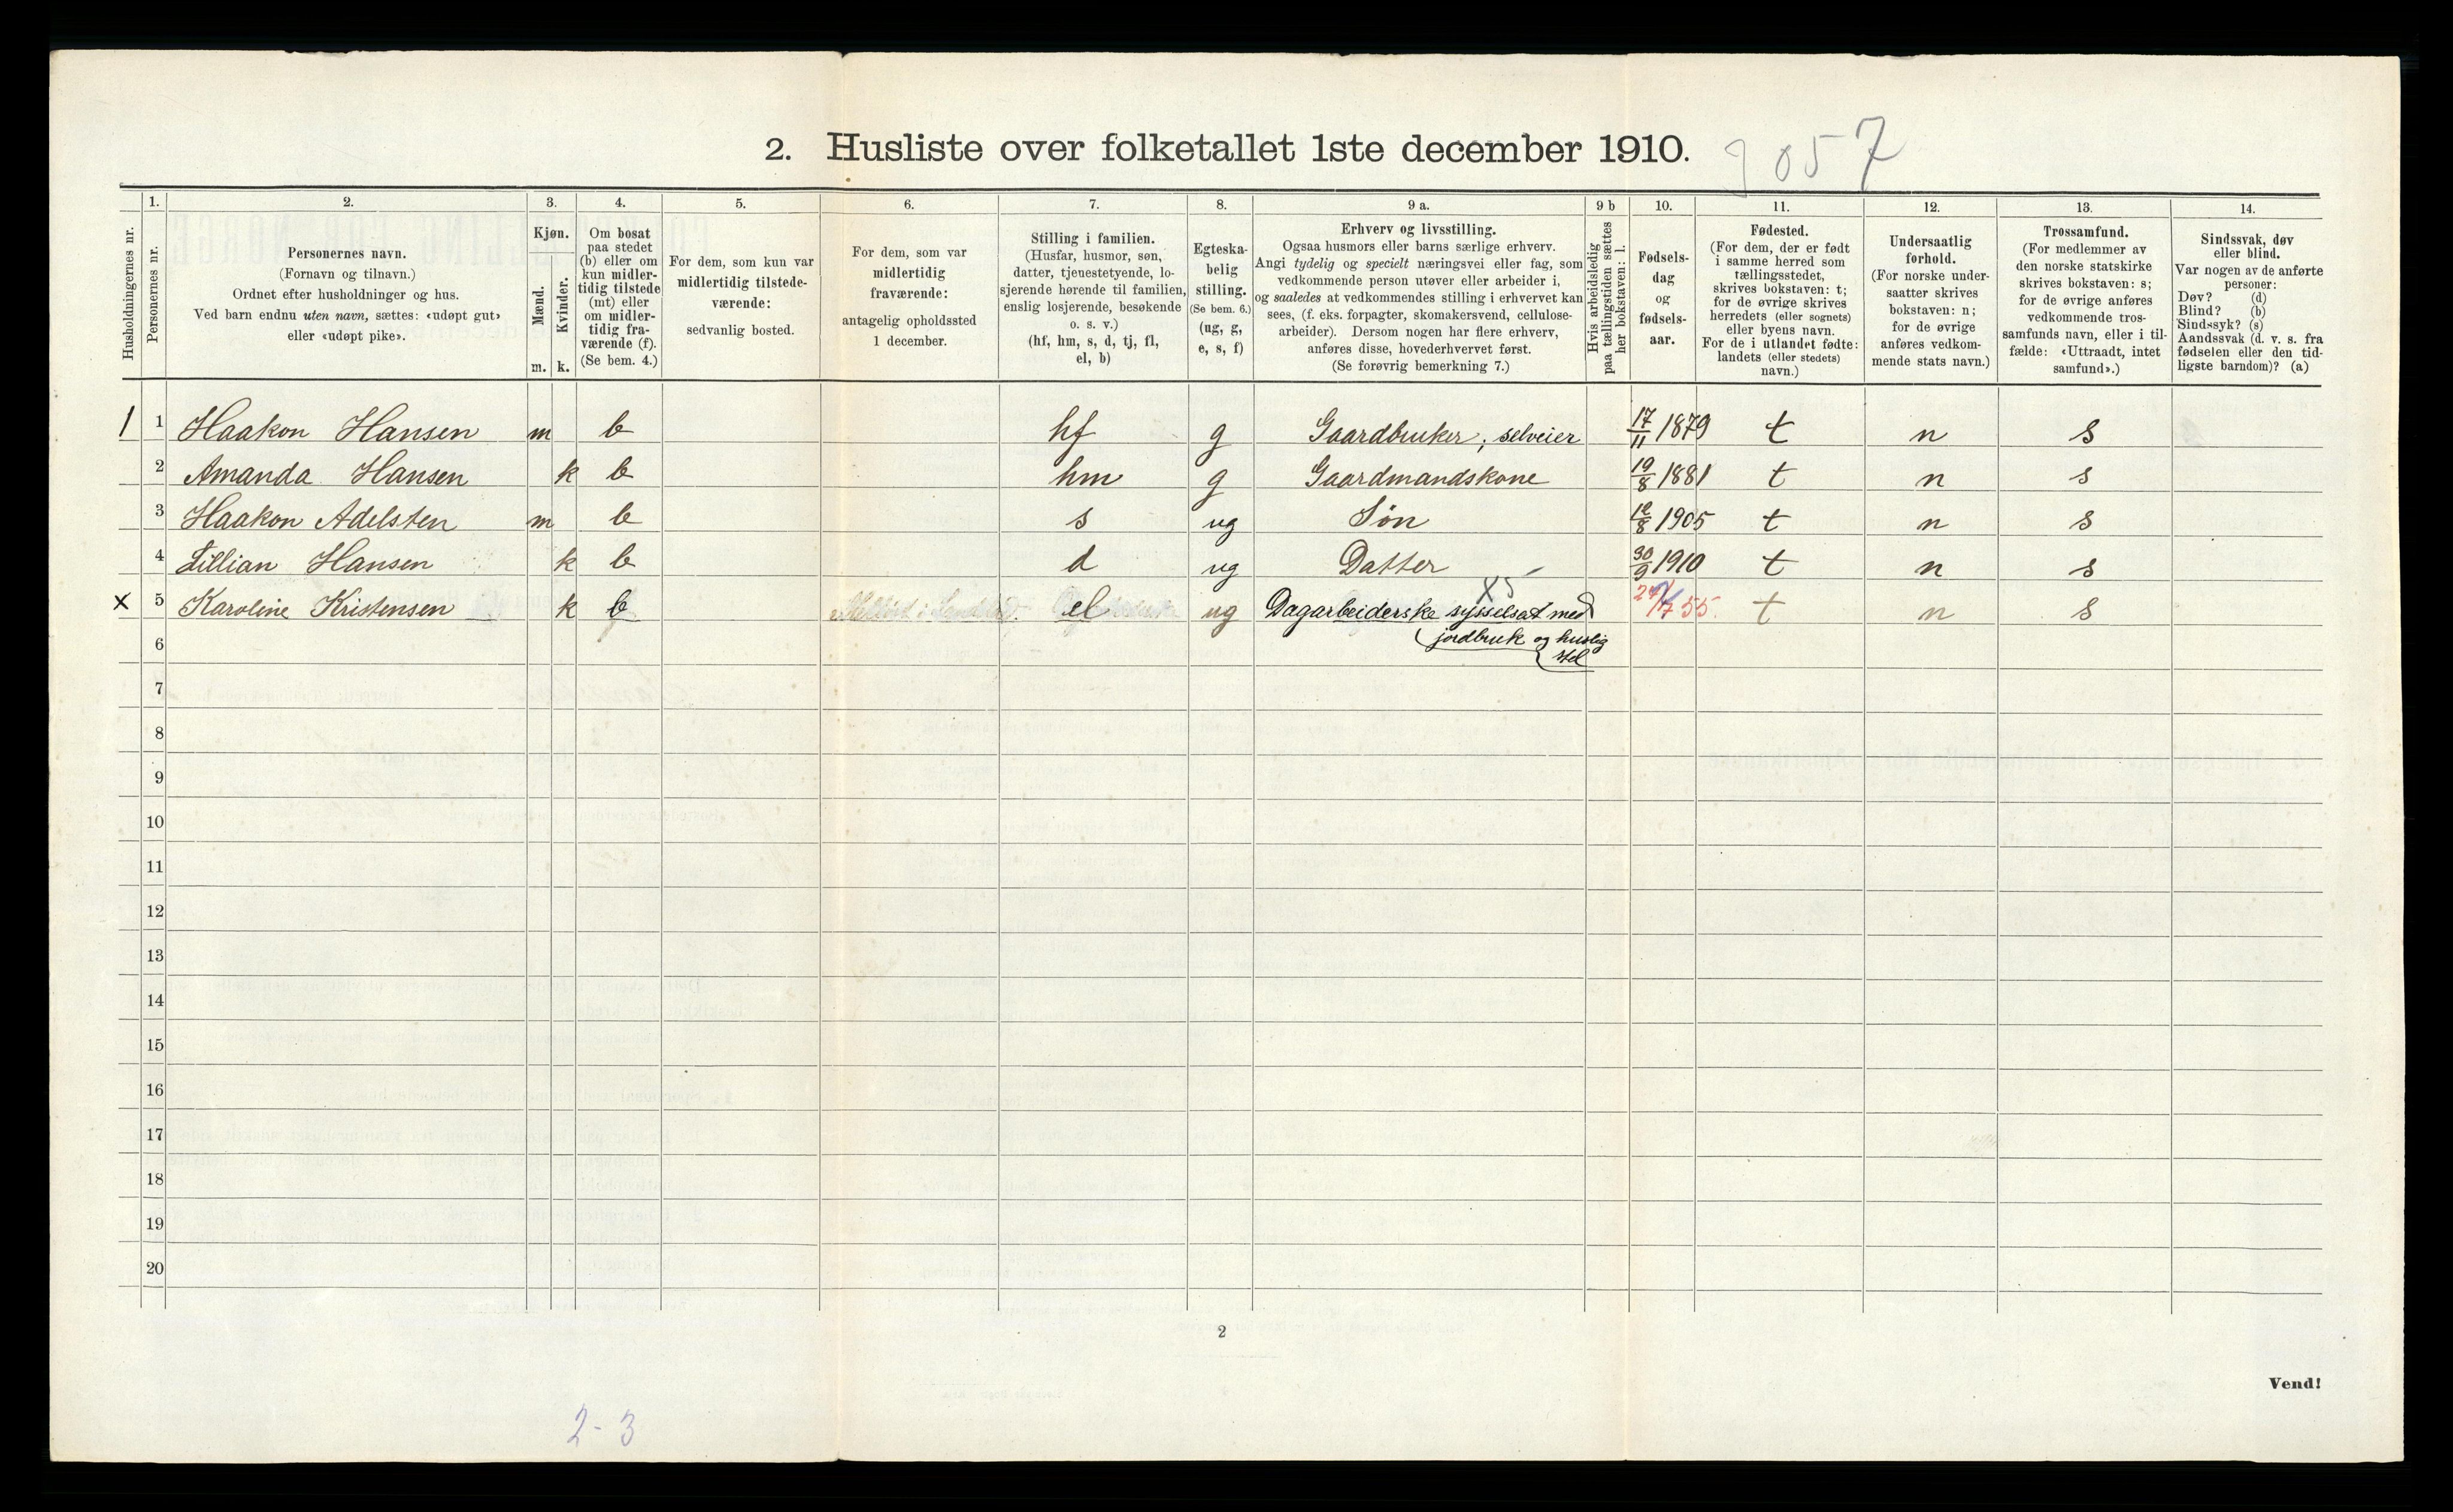 2. Husliste over folketallet 1ste december 1910.
9057
Husholdningernes nr.
1.
Personernes nr.
2.
Personernes navn.
(Fornavn og tilnavn.)
Ordnet efter husholdninger og hus.
Ved barn endnu uten navn, sættes: «udøpt gut»
eller «udøpt pike».
3.
Kjøn.
Mænd.
m.
Kvinder.
k.
4.
Om bosat
paa stedet
(b) eller om
kun midler-
tidig tilstede
(mt) eller
om midler-
tidig fra-
værende (f).
(Se bem. 4.)
5.
For dem, som kun var
midlertidig tilstede-
værende:
sedvanlig bosted.
6.
For dem, som var
midlertidig
fraværende:
antagelig opholdssted
1 december.
7.
Stilling i familien.
(Husfar, husmor, søn,
datter, tjenestetyende, lo-
sjerende hørende til familien,
enslig losjerende, besøkende
o. s. v.)
(hf, hm, s, d, tj, fl,
el, b)
8.
Egteska-
belig
stilling.
(Se bem. 6.)
(ug, g,
e, s, f)
9 a.
Erhverv og livsstilling.
Ogsaa husmors eller barns særlige erhverv.
Angi tydelig og specielt næringsvei eller fag, som
vedkommende person utøver eller arbeider i,
og saaledes at vedkommendes stilling i erhvervet kan
sees, (f. eks. forpagter, skomakersvend, cellulose-
arbeider). Dersom nogen har flere erhverv,
anføres disse, hovederhvervet først.
(Se forøvrig bemerkning 7.)
9 b
Hvis arbeidsledig
paa tællingstiden sættes
her bokstaven: l.
10.
Fødsels-
dag
og
fødsels-
aar.
11.
Fødested.
(For dem, der er født
i samme herred som
tællingsstedet,
skrives bokstaven: t;
for de øvrige skrives
herredets (eller sognets)
eller byens navn.
For de i utlandet fødte:
landets (eller stedets)
navn.)
12.
Undersaatlig
forhold.
(For norske under-
saatter skrives
bokstaven: n;
for de øvrige
anføres vedkom-
mende stats navn.)
13.
Trossamfund.
(For medlemmer av
den norske statskirke
skrives bokstaven: s;
for de øvrige anføres
vedkommende tros-
samfunds navn, eller i til-
fælde: «Uttraadt, intet
samfund».)
14.
Sindssvak, døv
eller blind.
Var nogen av de anførte
personer:
Døv? (d)
Blind? (b)
Sindssyk? (s)
Aandssvak (d. v. s. fra
fødselen eller den tid-
ligste barndom)? (a)
1 1 Haakon Hansen m b hf g Gaardbruker, selveier 17/11 1879 t n s
2 Amanda Hansen k b hm g Gaardmandskone 19/8 1881 t n s
3 Haakon Adelsten m b s ug Søn 12/8 1905 t n s
4 Lillian Hansen k b d ug Datter 30/9 1910 t n s
X5
x 5 Karoline Kristensen k b el ug Dagarbeiderske sysselsat med 27/7 55. t n s
jordbruk og huslig
stel
6
7
8
9
10
11
12
13
14
15
16
17
18
19
20
2
Vend!
2-3